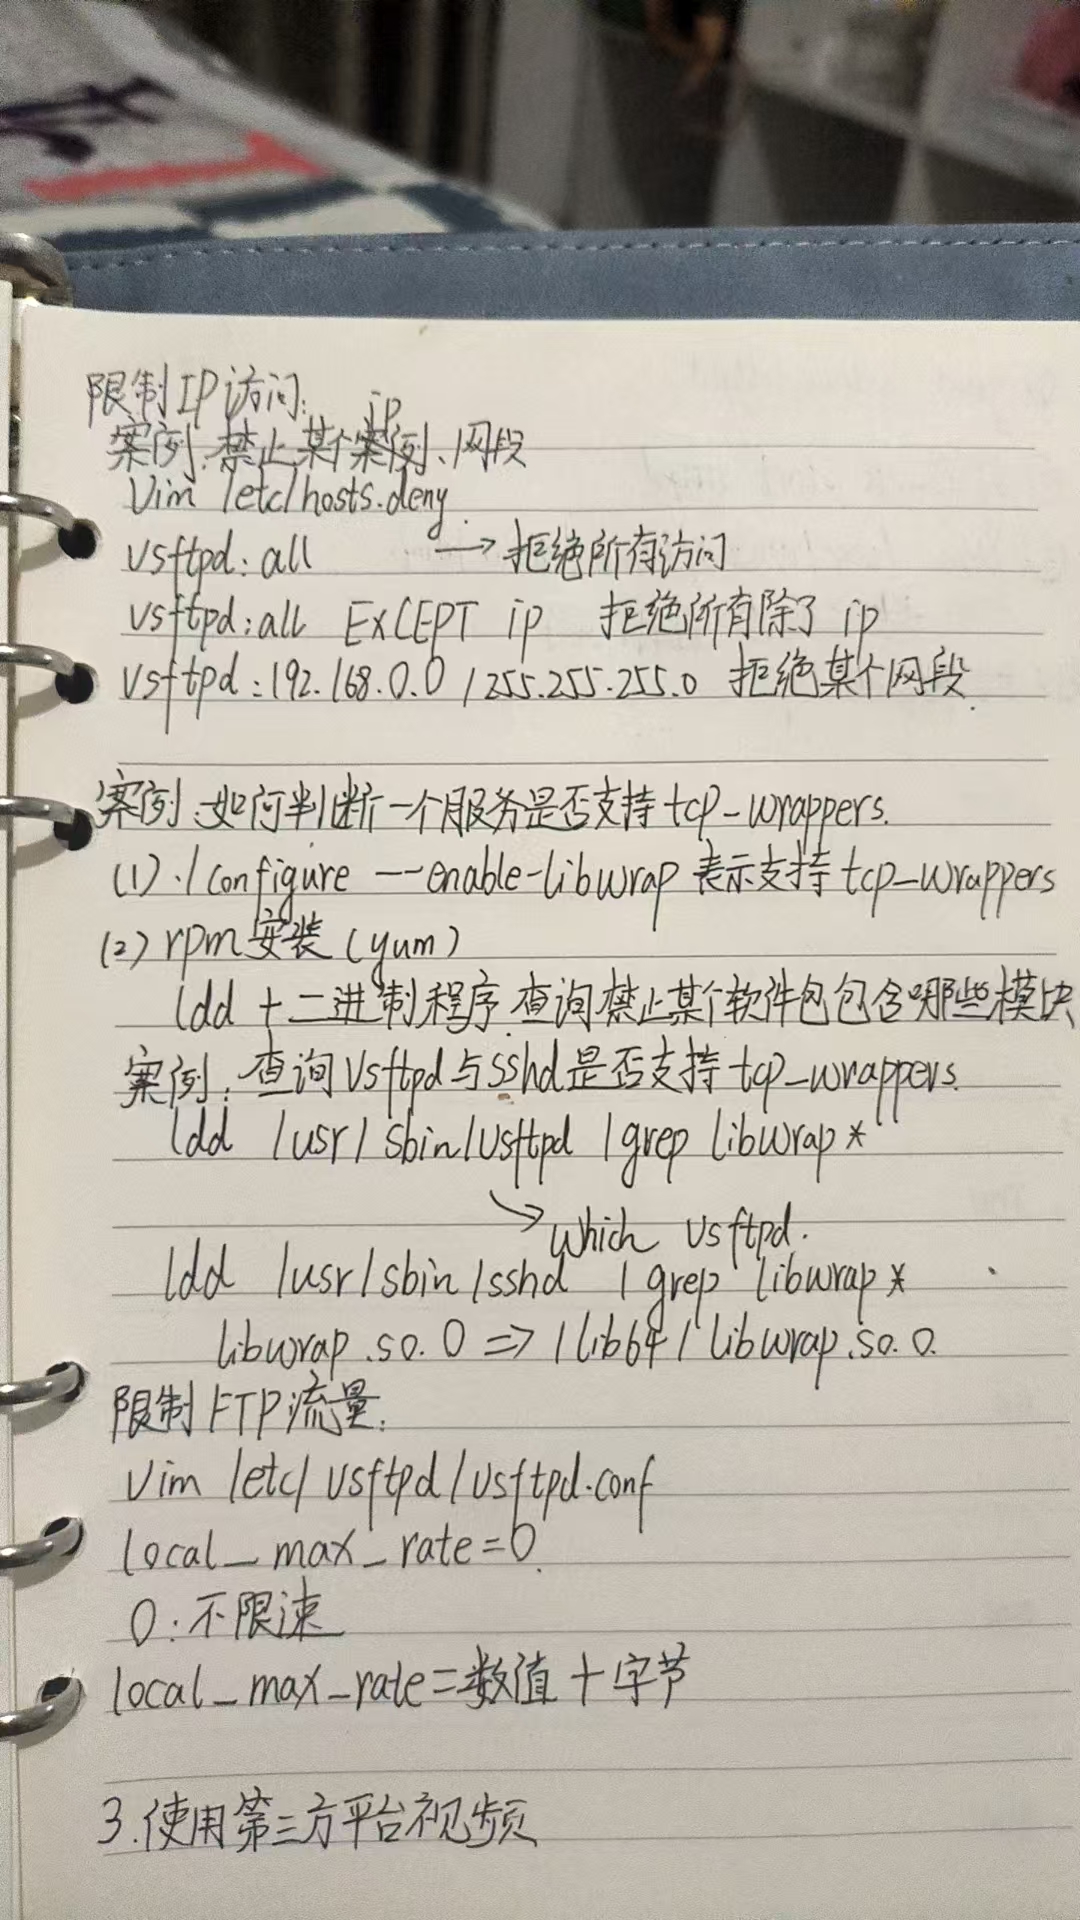 限制IP访问:
ip
案例:禁止某个案例、网段
Vim /etc/hosts.deny.
vsftpd:all → 拒绝所有访问
vsftpd:all EXCEPT ip 拒绝所有除了 ip
vsftpd:192.168.0.0/255.255.255.0 拒绝某个网段.
案例:如何判断一个服务是否支持tcp-wrappers.
(1) ./configure --enable-libwrap 表示支持tcp-wrappers
(2) rpm安装(yum)
ldd + 二进制程序 查询禁止某个软件包包含哪些模块
案例:查询Vsftpd与sshd是否支持tcp-wrappers.
ldd /usr/sbin/vsftpd |grep libwrap*
→ which vsftpd.
ldd /usr/sbin/sshd |grep libwrap*
libwrap.so.0 => /lib64/libwrap.so.0.
限制FTP流量:
Vim /etc/vsftpd/vsftpd.conf
local_max_rate=0.
0:不限速
local_max_rate=数值+字节
3.使用第三方平台视频